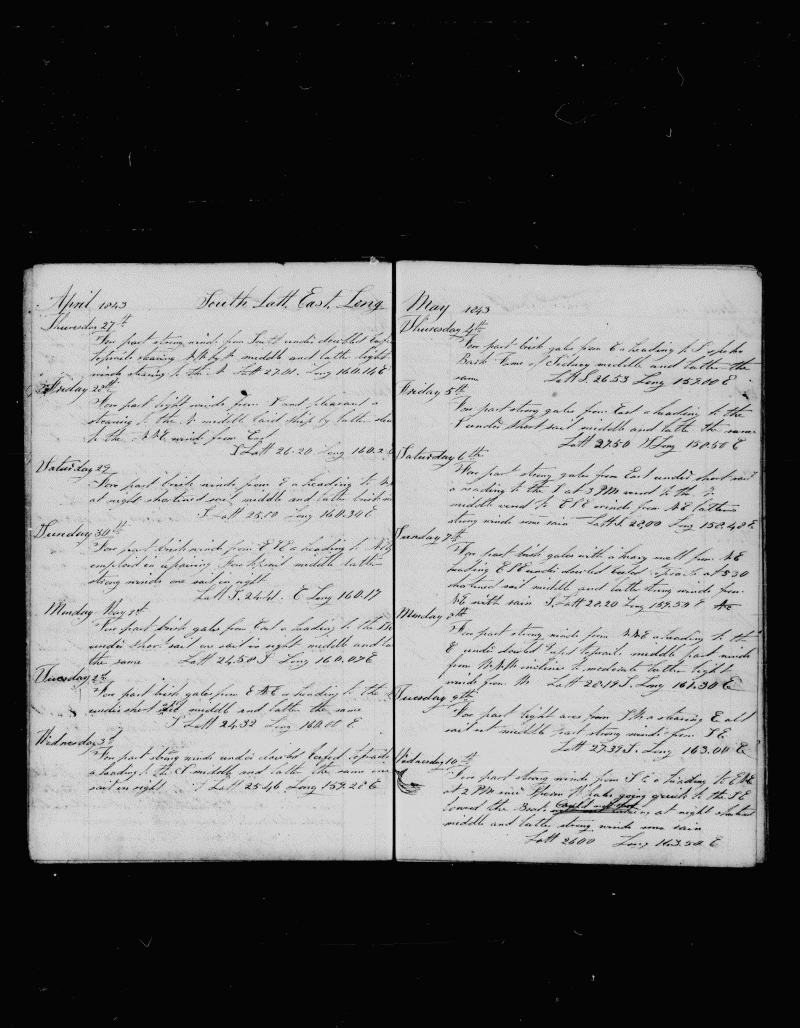 April 1843 South Latt East Long
Thursday 27th
Fore part strong winds from South under doubled Reefed
topsails stearing N W by N middle and latter light
winds stearing to the N Latt 27.01. Long 160.14 E
Friday 28th
Fore part light winds from S and pleasant a
stearing to the N middle laid ship by latter
to the N N E winds from East
S Latt 26.20 Long 160.2
Saturday 29
Fore part brisk winds from E a heading to
at night shortened sail middle and latter brisk
S Latt 25.10 Long 160.34 E
Sunday 30th
Fore part brisk winds from E a heading to
employed in repairing middle latter
strong winds one sail in sight
Latt S. 24.41. E Long 160.17
Monday May 1st
Fore part brisk gales from East a heading to the
under short sail one sail in sight middle and
the same Latt 24.50 S Long 160.07 E
Tuesday 2d
Fore part brisk gales from E a heading to the
under short sail middle and latter the same
S Latt 24.32 Long 160.00 E
Wednesday 3d
Fore part strong winds under doubled Reefed topsails
a heading to the S middle and latter the same one
sail in sight S Latt 25.46 Long 159.28 E
May 1843
Thursday 4th
Fore part brisk gales from E a heading to S spoke
Bark Fame of Sidney middle and latter the
same Latt S. 26.53 Long 159.00 E
Friday 5th
Fore part strong gales from East a heading to the
S under short sail middle and latter the same
Latt 27.50 Long 158.50 E
Saturday 6th
Fore part strong gales from East under short sail
a heading to the S at 3 PM wend to the N
middle wend to E S E winds from N E latter
strong winds some rain Latt S. 28.00 Long 158.48 E
Sunday 7th
Fore part brisk gales with a heavy swell from N E
heading E S E under doubled Reefed topsails at 5 30
shortened sail middle and latter strong winds from
N E with rain S Latt 28.20 Long 159.59 E
Monday 8th
Fore part strong winds from N N E a heading to the
E under doubled Reefed topsails middle part winds
from N N W inclined to moderate latter light
winds from W Latt 28.19 S. Long 161.30 E
Tuesday 9th
Fore part light airs from S W a stearing E all
sail out middle part strong winds from S E
Latt 27.39 S. Long 163.00 E
Wednesday 10th
Fore part strong winds from S E a heading to E N E
at 2 PM saw Sperm Whales going quick to the S E
lowered the Boats could not strike at night shortened
middle and latter strong winds some rain
Latt 26.00 Long 163.50 E